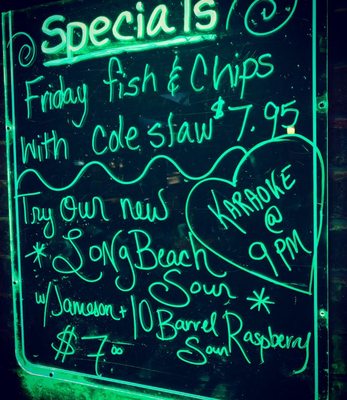 Specials
Friday fish & Chips
with Coleslaw $7.95
Try Our new
* Long Beach
Sour *
w/ Jameson + 10 Barrel Raspberry
Sour
$7.00
KARAOKE
@
9PM